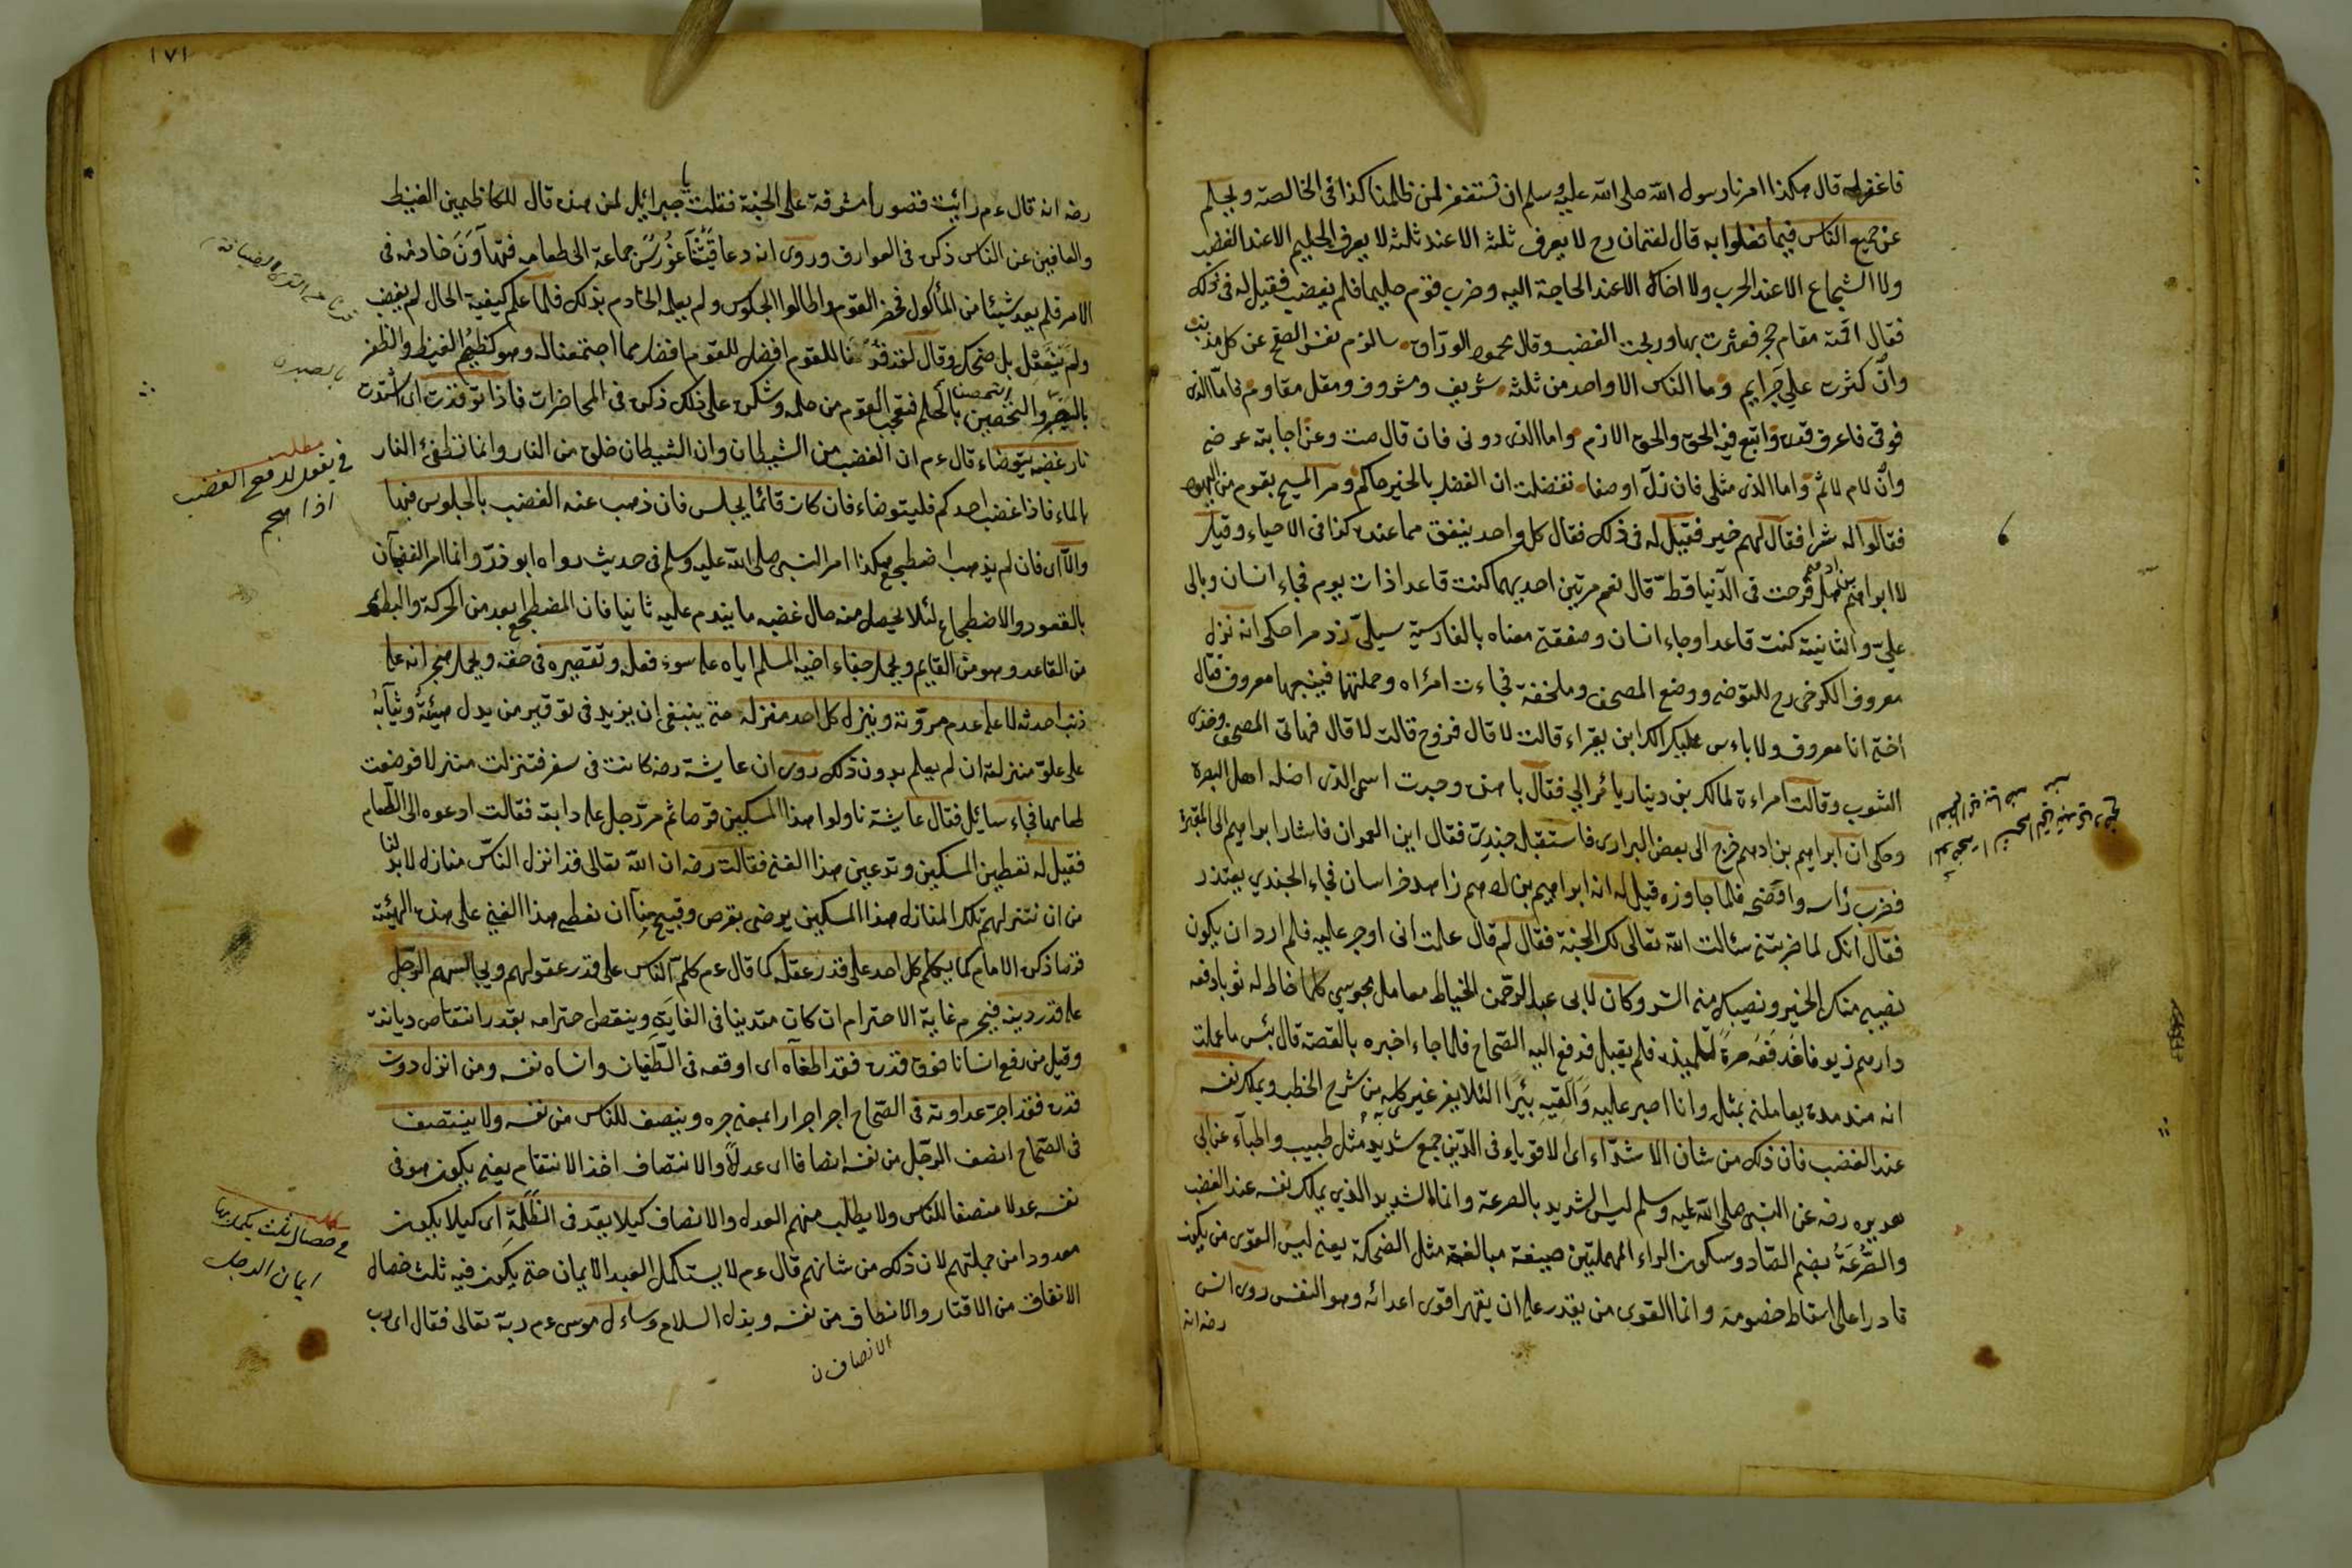 فاغفر له قال هكذا امرنا رسول الله صلى الله عليه وسلم ان نستغفر لمن ظلمنا كذا فى الخالصة ويحلم
عن جميع الناس فيما فعلوا به قال لقمان رح لا يعرف ثلثة الا عند ثلثة لا يعرف الحليم الا عند الغضب
ولا الشجاع الا عند الحرب ولا اخاك الا عند الحاجة اليه وضرب قوم حليما فلم يغضب فقيل له فى ذلك
فقال اقمته مقام حجر فعثرت بها وربحت الغضب وقال محمود الوراق سالزم نفسى الصفح عن كل مذنب
وان كثرت على جرايم وما الناس الا واحد من ثلثة شريف ومشروف ومثل مقاوم فاما الذى
فوقى فاعرف قدره واتبع فيه الحق والحق لازم واما الذى دونى فان قال صنت وعن اجابته عرضى
وان لام لائم واما الذى مثلى فان زل او هفا تفضلت ان الفضل بالخير حاكم ومر المسيح بقوم من اليهود
فقالوا له شرا فقال لهم خير فقيل له فى ذلك فقال كل واحد ينفق مما عنده كذا فى الاحياء وقيل
لابراهيم بن ادهم هل فرحت فى الدنيا قط قال نعم مرتين احديهما كنت قاعدا ذات يوم فجاء انسان وبال
على والثانية كنت قاعدا وجاء انسان وصفقنى معناه بالفارسية سيلى زد مرا حكى انه نزل
معروف الكرخى رح للتوضى ووضع المصحف وملحفة فجاءت امراه وحملتها فتبعها معروف فقال
اختى انا معروف ولا باءس عليك الك ابن يقراء قالت لا قال فزوج قالت لا قال فهاتى المصحف وخذى
الثوب وقالت امراءة لمالك بن دينار يا مرائى فقال يا هذه وجدت اسمى الذى اضله اهل البصرة
وحكى ان ابراهيم بن ادهم خرج الى بعض البرارى فاستقبله جندى فقال اين العمران فاشار ابراهيم الى المقبرة
فضرب راسه واوضحه فلما جاوزه قيل له انه ابراهيم بن ادهم زاهد خراسان فجاء الجندي يعتذر
فقال انك لما ضربتنى سئالت الله تعالى لك الجنة فقال لم قال علمت انى اوجر عليه فلم ارد ان يكون
نصيبى منك الخير ونصيبك منى الشر وكان لابى عبد الرحمن الخياط معامل مجوسي كلما خاط له ثوبا دفعه
دارهم زيوفا فدفعه مرة لتلميذه فلم يقبل فدفع اليه الصحاح فلما جاء اخبره بالقصة قال بئس ما عملت
انه منذ مدة يعاملنى بمثله وانا اصبر عليه والقيه بئرا لئلا يغر غيرى كله من شرح الخطب ويملك نفسه
عند الغضب فان ذلك من شان الاشداء اى الاقوياء فى الدين جمع شديد مثل طبيب واطباء عن ابى
هريره رضه عن النبى صلى الله عليه وسلم ليس الشديد بالصرعة وانما الشديد الذي يملك نفسه عند الغضب
والصرعة بضم الصاد وسكون الراء المهملتين صيغة مبالغة مثل الضحكة يعنى ليس القوى من يكون
قادرا على اسقاط خصومه وانما القوى من يقدر على ان يقهر اقوى اعدائه وهو النفس روى انس
رضه انه
١٧١
رضه انه قال ءم رائيت قصورا مشرفة على الجنة فقلت يا جبرائيل لمن هذه قال للكاظمين الغيظ
والعافين عن الناس ذكره فى العوارف وروى انه دعا جماعة الى طعامه فتهاون خادمه فى
الامر فلم يعد شيئا من المأكول فحضر القوم واطالوا الجلوس ولم يعلمه الخادم بذلك فلما علم كيفية الحال لم يغضب
ولم ينفعل بل ضحك وقال للقوم افضل مما اجتمعنا له وهو كظم الغيظ والظفر
بالصبر والتحصين بالحلم فتعجب القوم من حلمه وشكره على ذلك ذكره فى المحاضرات فاذا توقدت اى اشتدت
نار غضبه يتوضاء قال ءم ان الغضب من الشيطان وان الشيطان خلق من النار وانما تطفئ النار
بالماء فاذا غضب احدكم فليتوضاء فان كان قائما يجلس فان ذهب عنه الغضب بالجلوس فبها
والا اى فان لم يذهب اضطجع هكذا امر النبى صلى الله عليه وسلم فى حديث رواه ابو ذر وانما امر الغضبان
بالقعود والاضطجاع لئلا يحصل منه حال غضبه ما يندم عليه ثانيا فان المضطجع ابعد من الحركة والبطش
من القاعد وهو من القايم ويحمل جفاء اخيه المسلم اياه على سوء فعله وتقصيره فى حقه ويحمل هجرانه على
ذنب احدثه لا على عدم مروته وينزل كل احد منزله حتى ينبغى ان يزيد فى توقير من يدل هيئته وثيابه
على علو منزلته ان لم يعلم بدون ذلك روى ان عايشة رضه كانت فى سفر فنزلت منزلا فوضعت
طعامها فجاء سائيل فقال عايشة ناولوا هذا المسكين قرصا ثم مر رجل على دابة فقالت ادعوه الى الطعام
فقيل له تعطين المسكين وتدعين هذا الغنى فقالت رضه ان الله تعالى قد انزل الناس منازل لا بد لنا
من ان ننزلهم تلك المنازل هذا المسكين يرضى بقرص وقبيح منا ان نعطى هذا الغني على هذه الهيئة
قرصا ذكره الامام كما يكلم كل احد على قدر عقله كما قال ءم كلم الناس على قدر عقولهم ويجالسهم الرجل
على قدر دينه فيحرم غاية الاحترام ان كان متدينا فى الغاية وينقص احترامه بقدر انتقاص ديانته
وقيل من رفع انسانا فوق قدره فقد اطغاه اى اوقعه فى الطغيان وانساه نفسه ومن انزل دون
قدره فقد اجر عداوته فى الصحاح اجر اجرارا بمعنى جره وينصف للناس من نفسه ولا ينتصف
فى الصحاح انصف الرجل من نفسه انصافا اى عدلا والانتصاف اخذ الانتقام يعنى يكون هو فى
نفسه عدلا منصفا للناس ولا يطلب منهم العدل والانصاف كيلا يعد فى الظلمة اى كيلا يكون
معدودا من جملتهم لان ذلك من شانهم قال ءم لا يستكمل العبد الايمان حتى يكون فيه ثلث خصال
الانفاق من الاقتار والانصاف من نفسه وبذل السلام وساءل موسى ءم ربه تعالى فقال اى رب
الانصاف ن
بالصبر ن
مطلب
فى يفعل لدفع الغضب
اذا هجم
مطلب
فى خصال ثلث يكمل بها
ايمان الرجل